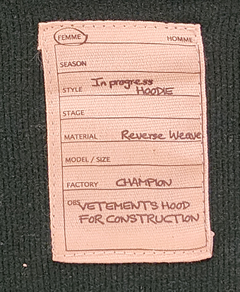 FEMME HOMME
SEASON
STYLE In progress
HOODIE
STAGE
MATERIAL Reverse Weave
MODEL / SIZE
FACTORY CHAMPION
OBS VETEMENTS HOOD
FOR CONSTRUCTION